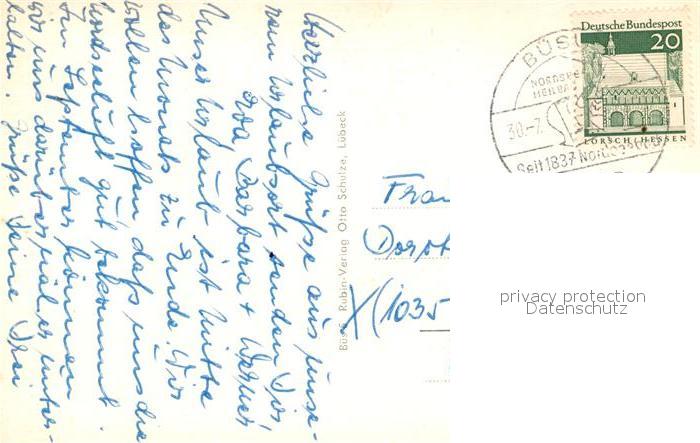 Herzliche Grüße aus unse-
rem Urlaubsort senden Dir
Eva, Barbara + Werner
Unser Urlaub ist Mitte
des Monats zu Ende. Wir
wollen hoffen, daß uns die
Nordseeluft gut bekommt.
Im September können
wir uns darüber mal unter-
halten. Grüße Deine Drei
Büs Rubin-Verlag Otto Schulze, Lübeck
Deutsche Bundespost
20
LORSCH/HESSEN
BÜS
30.-7.
Seit 1837 Nordseebad
Frau
Dorot
X (1035
privacy protection
Datenschutz